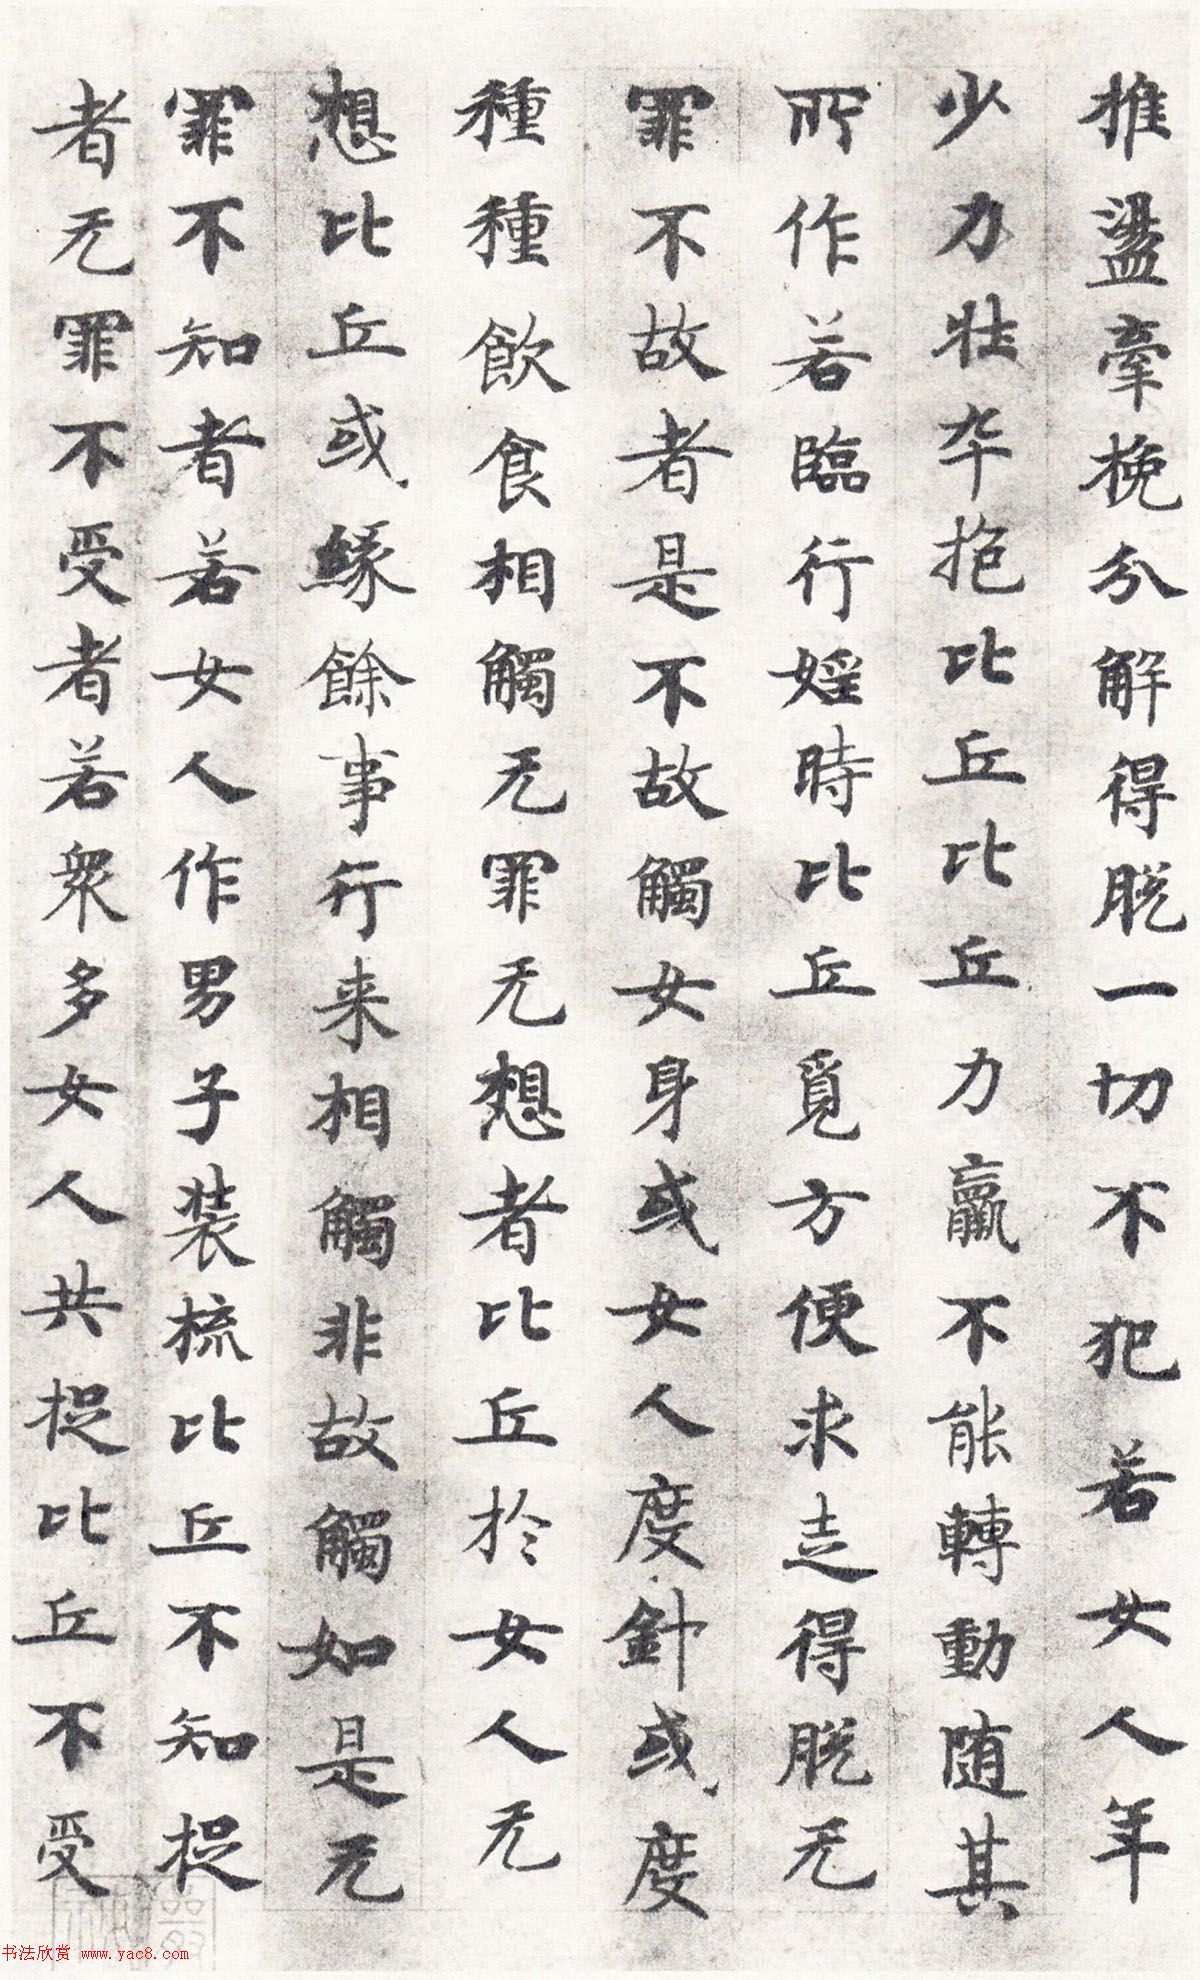 推盪牽挽分解得脫一切不犯若女人年
少力壯卒抱比丘比丘力羸不能轉動随其
所作若臨行婬時比丘覓方便求走得脫无
罪不故者是不故觸女身或女人度針或度
種種飲食相觸无罪无想者比丘於女人无
想比丘或緣餘事行来相觸非故觸如是无
罪不知者若女人作男子装梳比丘不知捉
者无罪不受者若衆多女人共捉比丘不受
书法欣赏 www.yac8.com